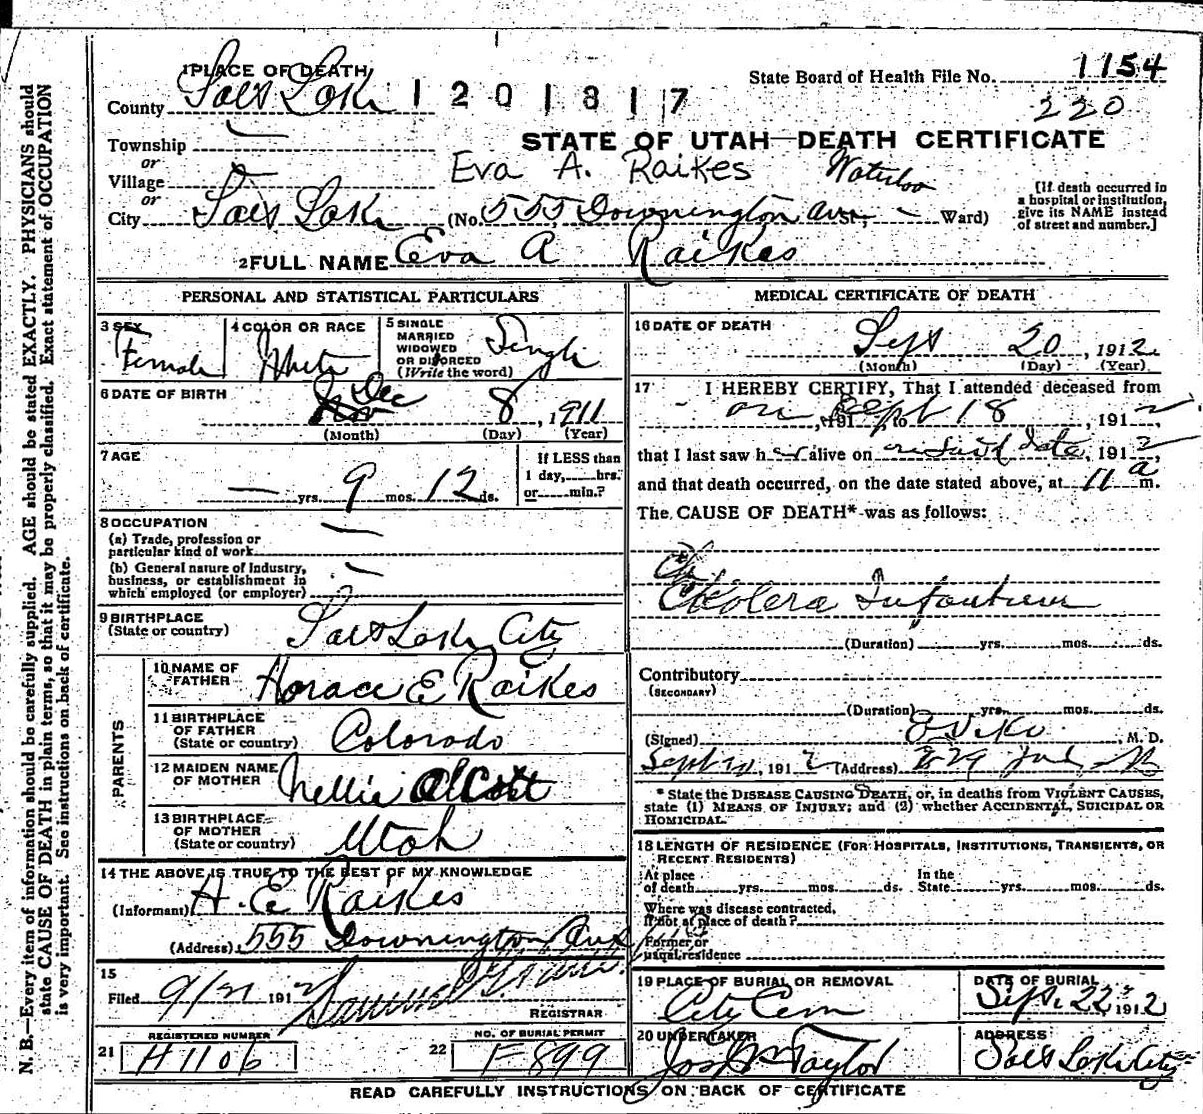 1 PLACE OF DEATH
State Board of Health File No. 1154
County Salt Lake 1201817
220
STATE OF UTAH—DEATH CERTIFICATE
Township —
or
Village
Eva A. Raikes Waterloo
or
City Salt Lake (No. 555 Downington Ave St., — Ward)
[If death occurred in
a hospital or institution,
give its NAME instead
of street and number.]
2 FULL NAME Eva A Raikes
PERSONAL AND STATISTICAL PARTICULARS
3 SEX Female
4 COLOR OR RACE White
5 SINGLE
MARRIED
WIDOWED
OR DIVORCED
(Write the word) Single
6 DATE OF BIRTH Dec 8, 1911
(Month) (Day) (Year)
7 AGE
— yrs. 9 mos. 12 ds.
If LESS than
1 day, hrs.
or min.?
8 OCCUPATION
(a) Trade, profession or
particular kind of work —
(b) General nature of Industry,
business, or establishment in
which employed (or employer) —
9 BIRTHPLACE
(State or country) Salt Lake City
PARENTS
10 NAME OF
FATHER Horace E Raikes
11 BIRTHPLACE
OF FATHER
(State or country) Colorado
12 MAIDEN NAME
OF MOTHER Nellie Olcott
13 BIRTHPLACE
OF MOTHER
(State or country) Utah
14 THE ABOVE IS TRUE TO THE BEST OF MY KNOWLEDGE
(Informant) H. E. Raikes
(Address) 555 Downington Ave
15
Filed 9/21 1912
REGISTRAR
REGISTERED NUMBER
21 H1106
NO. OF BURIAL PERMIT
22 F-899
MEDICAL CERTIFICATE OF DEATH
16 DATE OF DEATH
Sept 20, 1912
(Month) (Day) (Year)
17 I HEREBY CERTIFY, That I attended deceased from
on, 191 to Sept 18, 1912
that I last saw her alive on said date, 1912,
and that death occurred, on the date stated above, at 11 a m.
The CAUSE OF DEATH* was as follows:
Ch
Cholera Infantum
(Duration) yrs. mos. ds.
Contributory
(SECONDARY)
(Duration) yrs. mos. ds.
(Signed) M. D.
Sept, 1912 (Address)
* State the DISEASE CAUSING DEATH, or, in deaths from VIOLENT CAUSES,
state (1) MEANS OF INJURY; and (2) whether ACCIDENTAL, SUICIDAL OR
HOMICIDAL.
18 LENGTH OF RESIDENCE (FOR HOSPITALS, INSTITUTIONS, TRANSIENTS, OR
RECENT RESIDENTS)
At place
of death yrs. mos. ds.
In the
State yrs. mos. ds.
Where was disease contracted,
if not at place of death?
Former or
usual residence
19 PLACE OF BURIAL OR REMOVAL
City Cem
DATE OF BURIAL
Sept. 22, 1912
20 UNDERTAKER
Jos Wm Taylor
ADDRESS
Salt Lake City
READ CAREFULLY INSTRUCTIONS ON BACK OF CERTIFICATE
N. B.—Every item of information should be carefully supplied. AGE should be stated EXACTLY. PHYSICIANS should
state CAUSE OF DEATH in plain terms, so that it may be properly classified. Exact statement of OCCUPATION
is very important. See instructions on back of certificate.